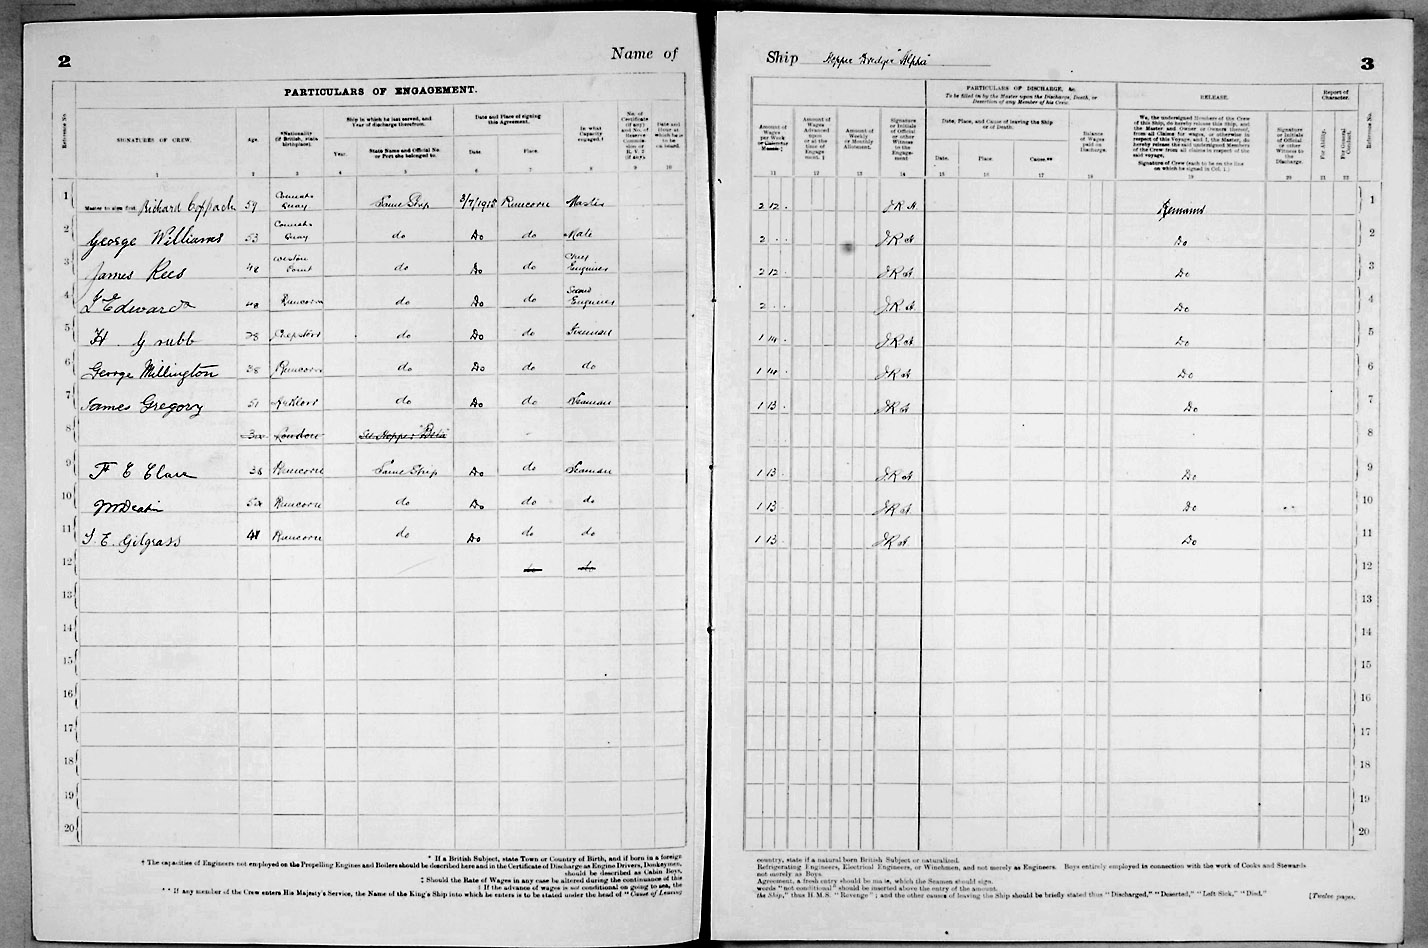 2
Name of
PARTICULARS OF ENGAGEMENT.
Reference No.
SIGNATURES OF CREW.
Age.
*Nationality (If British, state birthplace).
Ship in which he last served, and Year of discharge therefrom.
Year.
State Name and Official No. or Port she belonged to.
Date and Place of signing this Agreement.
Date.
Place.
In what Capacity engaged.†
No. of Certificate (if any) and No. of Reserve Commission or R. V. 2 (if any).
Date and Hour at which he is to be on board.
1 2 3 4 5 6 7 8 9 10
1 Master to sign first. Richard Coppack 59 Connahs Quay Same Ship 3/7/1915 Runcorn Master
2 George Williams 53 Connahs Quay do Do do Mate
3 James Rees 48 Weston Point do Do do Chief Engineer
4 Edwards 40 Runcorn do Do do Second Engineer
5 H Grubb 38 Chepstow do Do do Fireman
6 George Millington 38 Runcorn do Do do do
7 James Gregory 51 do Do do Seaman
8 London Hopper Beta
9 F E Clare 38 Runcorn Same Ship Do do Seaman
10 W Deakin 52 Runcorn do Do do do
11 J. E. Gilgrass 41 Runcorn do Do do do
12 do do
13
14
15
16
17
18
19
20
* If a British Subject, state Town or Country of Birth, and if born in a foreign
† The capacities of Engineers not employed on the Propelling Engines and Boilers should be described here and in the Certificate of Discharge as Engine Drivers, Donkeymen,
should be described as Cabin Boys.
‡ Should the Rate of Wages in any case be altered during the continuance of this
| If the advance of wages is not conditional on going to sea, the
** If any member of the Crew enters His Majesty's Service, the Name of the King's Ship into which he enters is to be stated under the head of "Cause of Leaving
Ship Hopper Dredger "Alpha"
3
Amount of Wages per Week or Calendar Month ‡
Amount of Wages Advanced upon or at the time of Engagement. ‡
Amount of Weekly or Monthly Allotment.
Signature or Initials of Official or other Witness to the Engagement
PARTICULARS OF DISCHARGE, &c.
To be filled in by the Master upon the Discharge, Death, or Desertion of any Member of his Crew.
Date, Place, and Cause of leaving the Ship or of Death.
Date.
Place.
Cause.**
Balance of Wages paid on Discharge.
RELEASE.
We, the undersigned Members of the Crew of this Ship, do hereby release this Ship, and the Master and Owner or Owners thereof, from all Claims for wages, or otherwise in respect of this Voyage; and I, the Master, do hereby release the said undersigned Members of the Crew from all claims in respect of the said voyage.
Signature of Crew (each to be on the line on which he signed in Col. 1.)
Signature or Initials of Official or other Witness to the Discharge.
Report of Character.
For Ability.
For General Conduct.
Reference No.
11 12 13 14 15 16 17 18 19 20 21 22
2 12 . J R A Remains 1
2 . . J R A Do 2
2 12 . J R A Do 3
2 . . J R A Do 4
1 14 . J R A Do 5
1 14 . J R A Do 6
1 13 . J R A Do 7
8
1 13 . J R A Do 9
1 13 . J R A Do 10
1 13 . J R A Do 11
12
13
14
15
16
17
18
19
20
country, state if a natural born British Subject or naturalized.
Refrigerating Engineers, Electrical Engineers, or Winchmen, and not merely as Engineers. Boys entirely employed in connection with the work of Cooks and Stewards
not merely as Boys.
Agreement, a fresh entry should be made, which the Seamen should sign.
words "not conditional" should be inserted above the entry of the amount.
the Ship," thus H.M.S. "Revenge"; and the other causes of leaving the Ship should be briefly stated thus "Discharged," "Deserted," "Left Sick," "Died."
[Twelve pages.